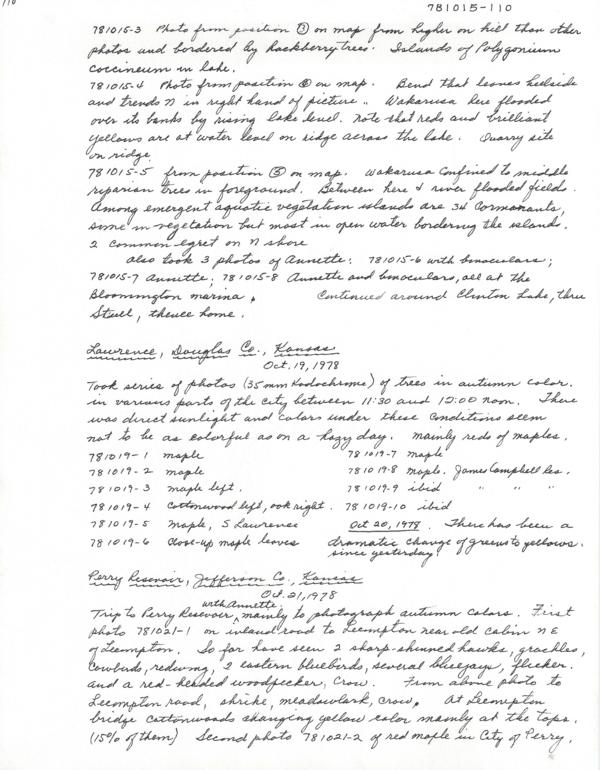 781015-110
110
781015-3 Photo from position ③ on map from higher on hill than other
photos and bordered by hackberry trees. Islands of Polygonium
coccineum in lake.
781015-4 Photo from position ④ on map. Bend that leaves hillside
and trends N in right hand of picture.. Wakarusa here flooded
over its banks by rising lake level. Note that reds and brilliant
yellows are at water level on ridge across the lake. Quarry site
on ridge.
781015-5 from position ⑤ on map. Wakarusa confined to middle
riparian trees in foreground. Between here & river flooded fields.
Among emergent aquatic vegetation islands are 34 Cormorants,
some in vegetation but most in open water bordering the islands.
2 Common egret on N shore
also took 3 photos of Annette: 781015-6 with binoculars;
781015-7 Annette; 781015-8 Annette and binoculars, all at the
Bloomington marina. Continued around Clinton Lake, thru
Stull, thence home.
Lawrence, Douglas Co., Kansas
Oct. 19, 1978
Took series of photos (35mm Kodochrome) of trees in autumn color.
in various parts of the city between 11:30 and 12:00 noon. There
was direct sunlight and colors under these conditions seem
not to be as colorful as on a hazy day. mainly reds of maples.
781019-1 maple 781019-7 maple
781019-2 maple 781019-8 maple. James Campbell Res.
781019-3 maple left. 781019-9 ibid " " "
781019-4 Cottonwood left, oak right. 781019-10 ibid
781019-5 Maple, S Lawrence Oct 20, 1978. There has been a
781019-6 close-up maple leaves dramatic change of greens to yellows.
since yesterday!
Perry Resevoir, Jefferson Co., Kansas
Oct. 21, 1978
with Annette
Trip to Perry Resevoir, mainly to photograph autumn colors. First
photo 781021-1 on inland road to Lecompton near old cabin NE
of Lecompton. So far have seen 2 sharp-shinned hawks, grackles,
Cowbirds, redwing, 2 eastern bluebirds, several bluejays, flicker.
and a red-headed woodpecker, Crow. From above photo to
Lecompton road, shrike, meadowlark, crow. At Lecompton
bridge cottonwoods changing yellow color mainly at the tops.
(15% of them) Second photo 781021-2 of red maple in City of Perry.